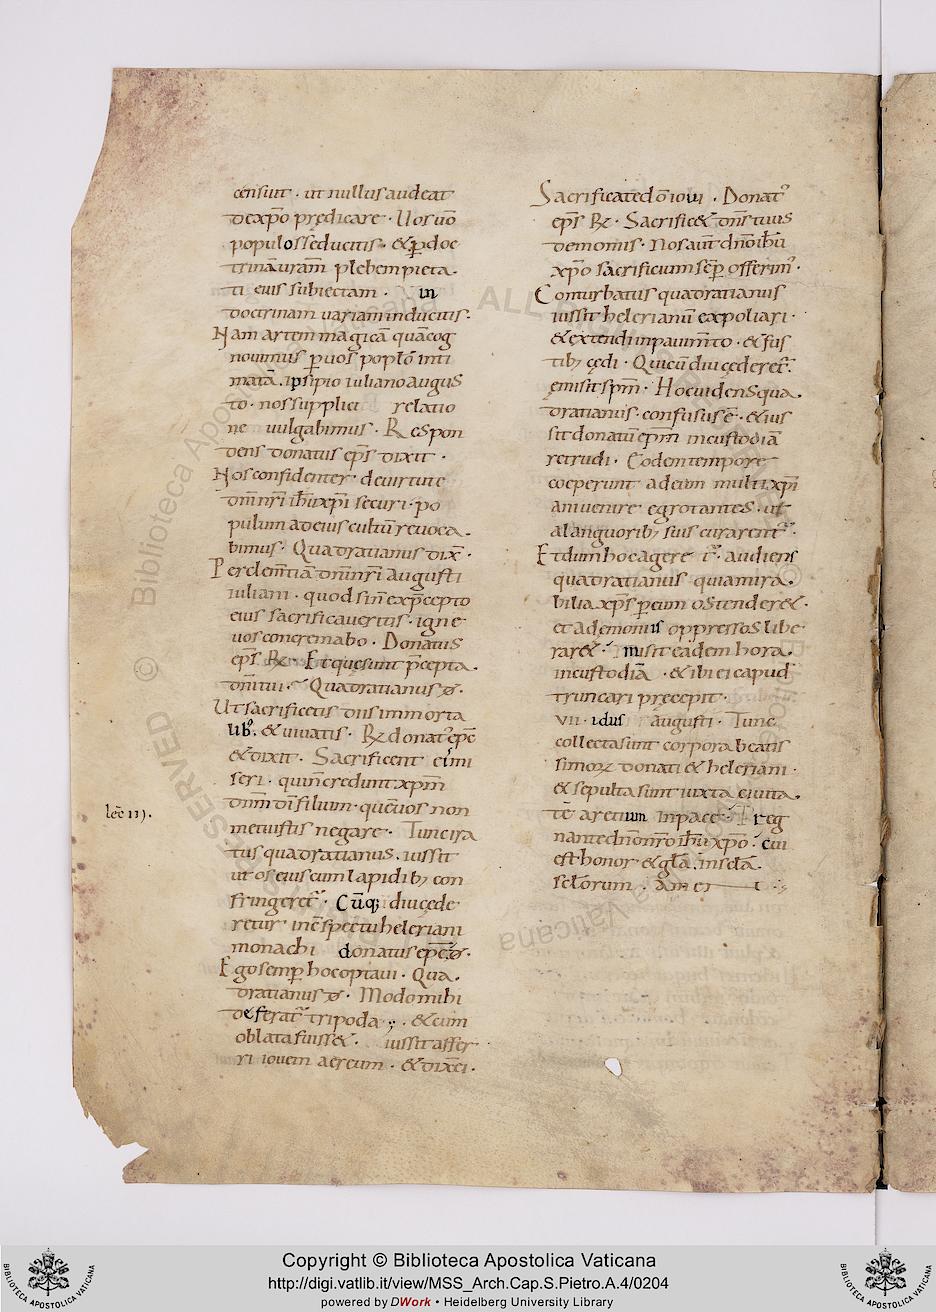 censuit · ut nullus audeat
de xp̄o prędicare · Uos uō
populos seducitis · & ꝑ doc
trinā uram̄ plebem pieta·
ti eius subiectam · in
doctrinam uariam inducitis·
Nam artem magicā quācog
nouimus ꝑ uos poplō inti
matā · ipsi pio iuliano augus
to · nos supplici relatio
ne uulgabimus · Respon
dens donatus ep̄s dixit ·
Nos confidenter de uirtute
dn̄i nr̄i ih̄u xp̄i securi · po
pulum ad eius cultū reuoca·
bimus · Quadratianus dix̄ ·
Per clem̄tiā dn̄i nr̄i augusti
iuliani · quod si n̄ ex p̄cepto
eius sacrificaueritis · igne
uos concremabo · Donatus
ep̄s R̷ · Et quę sunt p̄cepta·
dn̄i tui · Quadratianus ꝺ̷·
Ut sacrificetis diis immorta
lib᾽· & uiuatis · R̷ donat᾽ ep̄c
& dixit · Sacrificent ei mi
seri · qui n̄ credunt xp̄m̄
dn̄m dī filium · quē uos non
metuistis negare · Tunc ira
tus quadratianus · iussit
ut os eius cum lapidib; con
fringeret᾽ · Cūq; diu cęde
retur in c̄spectu heleriani
monachi donatus ep̄c ꝺ̷·
Ego semꝑ hoc optaui · Qua·
dratianus ꝺ̷ · Modo mihi
deferat᾽ tripoda · & cum
oblata fuiss& · iussit affer
ri iouem aereum · & dix̄ ei ·
lec̄ iij.
Sacrificate dō ioui · Donat᾽
ep̄s R̷ · Sacrific& dn̄s tuus
demoniis · Nos aut̄ dn̄o ih̄ū
xp̄o sacrificium semꝑ offerim᾽·
Conturbatus quadratianus
iussit helerianū expoliari ·
& extendi in pauim̄to · & fus
tib; cędi · Qui cū diu cęderet᾽·
emisit sp̄m · Hoc uidens qua·
dratianus · confusus ē · & ius
sit donatū ep̄m in custodiā
retrudi · Eodem tempore
coeperunt ad eum multi xp̄i
ani uenire egrotantes · ut
a languorib; suis curarent᾽·
Et dum hoc ageret᾽ · audiens
quadratianus quia mira·
bilia xp̄s ꝑ eum ostender&·
et a demoniis oppressos libe·
rar& · misit eadem hora ·
in custodiā · & ibi ei capud
truncari precepit ·
vii · idus augusti · Tunc
collecta sunt corpora beatis
simoꝝ donati & heleriani ·
& sepulta sunt iuxta ciuita·
tē aretium in pace · Reg
nante dn̄o nr̄o ih̄u xp̄o · cui
est honor & gl̄a · in sc̄la ·
scl̄orum · amen
Copyright © Biblioteca Apostolica Vaticana
http://digi.vatlib.it/view/MSS_Arch.Cap.S.Pietro.A.4/0204
powered by DWork • Heidelberg University Library